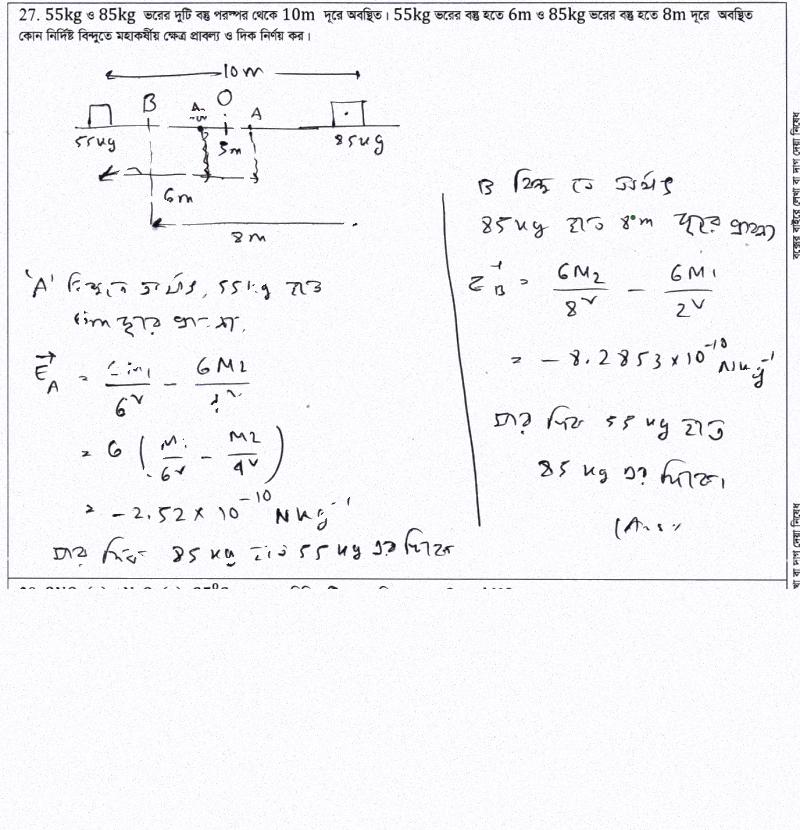 27. 55kg ও 85kg ভরের দুটি বস্তু পরস্পর থেকে 10m দূরে অবস্থিত। 55kg ভরের বস্তু হতে 6m ও 85kg ভরের বস্তু হতে 8m দূরে অবস্থিত
কোন নির্দিষ্ট বিন্দুতে মহাকর্ষীয় ক্ষেত্র প্রাবল্য ও দিক নির্ণয় কর।
10m
B O A
55kg 5m 85kg
6m
8m
'A' অর্থাৎ, 55kg হতে
6m দূরে
E⃗_A = GM₁/6² - GM2/4²
= G (M₁/6² - M2/4²)
= -2.52 × 10⁻¹⁰ Nkg⁻¹
যার দিক 85kg হতে 55kg এর দিকে
B অর্থাৎ
85kg হতে 8m দূরে
E⃗_B = GM2/8² - GM1/2²
= -8.2853 × 10⁻¹⁰ Nkg⁻¹
যার দিক 55kg হতে
85kg এর দিকে।
(Ans)